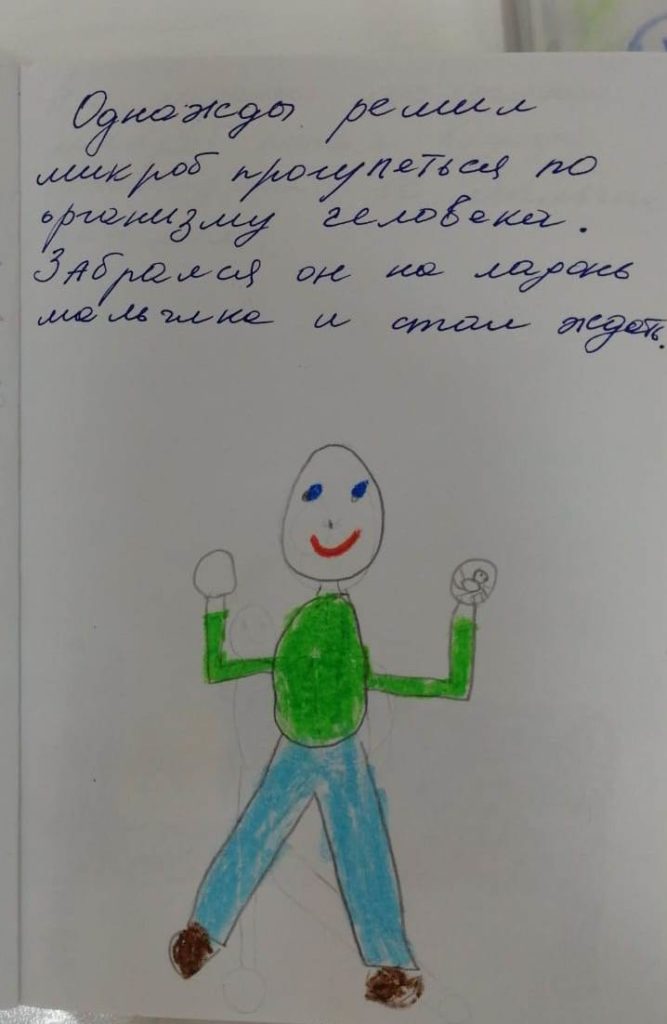 Однажды решил
микроб прогуляться по
организму человека.
Забрался он на ладонь
мальчика и стал ждать.